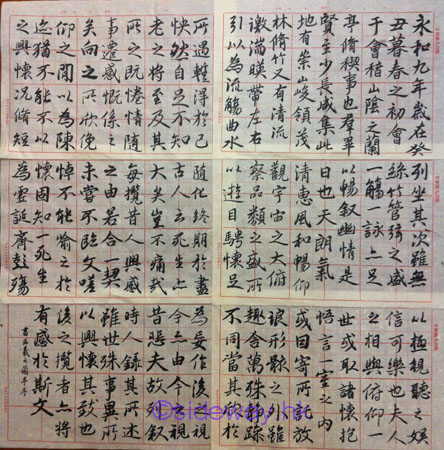 永和九年歲在癸
丑暮春之初會
于會稽山陰之蘭
亭脩稧事也羣畢
賢至少長咸集此
地有崇山峻領茂
林脩竹又有清流
激湍暎帶左右
引以為流觴曲水
列坐其次雖無
絲竹管弦之盛
一觴一詠亦足
以暢敘幽情是
日也天朗氣
清惠風和暢仰
觀宇宙之大俯
察品類之盛所
以遊目騁懷足
以極視聽之娛
信可樂也夫人
之相與俯仰一
世或取諸懷抱
悟言一室之內
或因寄所託放
浪形骸之外雖
趣舍萬殊靜躁
不同當其欣於
所遇輒得於己
快然自足不知
老之將至及其
所之既惓情隨
事遷感慨係之
矣向之所欣俛
仰之閒以為陳
迹猶不能不以
之興懷況脩短
隨化終期於盡
古人云死生亦
大矣豈不痛哉
每攬昔人興感
之由若合一契
未嘗不臨文嗟
悼不能喻之於
懷固知一死生
為虛誕齊彭殤
為妄作後之視
今亦由今之視
昔悲夫故列敘
時人錄其所述
雖世殊事異所
以興懷其致也
後之攬者亦將
有感於斯文
©sideway.hk